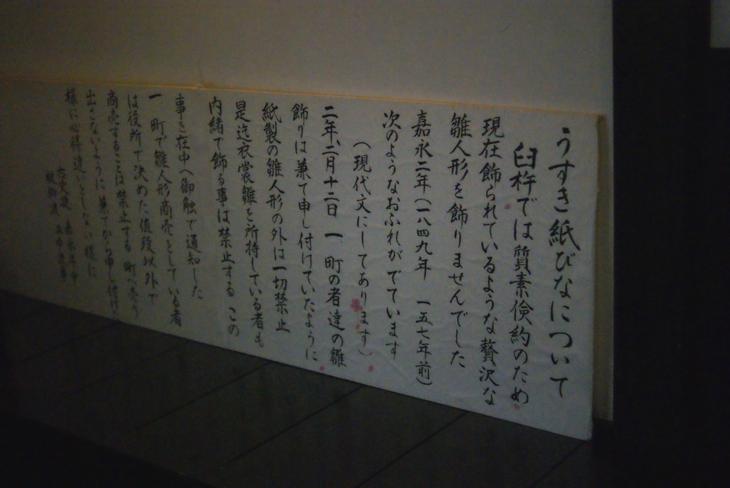 うすき紙びなについて
臼杵では質素倹約のため
現在飾られているような贅沢な
雛人形を飾りませんでした
嘉永二年(一八四九年 一五七年前)
次のようなおふれがでています
(現代文にしてあります)
二年、二月十二日 一 町の者達の雛
飾りは兼て申し付けていたように
紙製の雛人形の外は一切禁止
是迄衣裳雛を所持している者も
内緒で飾る事は禁止する この
事を在中へ御触で通知した
一 町で雛人形商売をしている者
は役所で決めた値段以外で
商売することは禁止する 町へ売り
出さないように兼てから申し付け
様に心得違いをしない様に